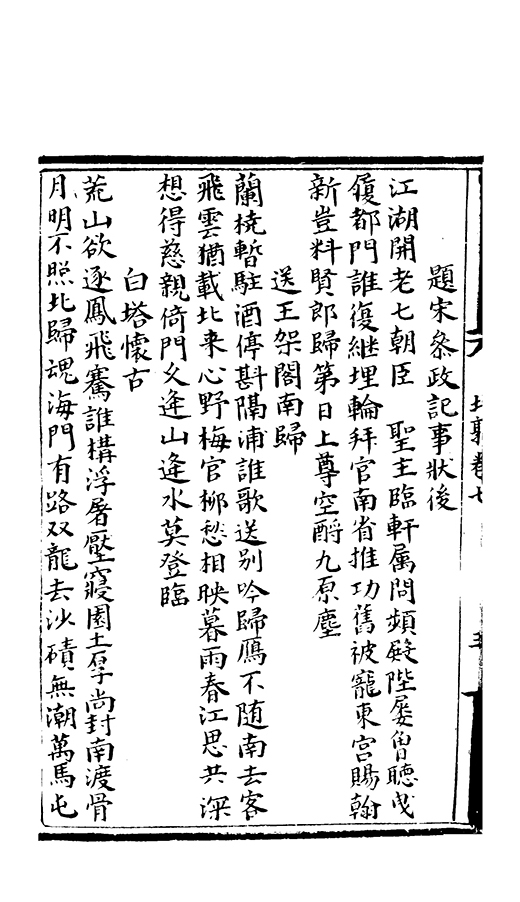 北郭卷七
題宋叅政記事狀後
江湖開老七朝臣　聖主臨軒属問頻殿陛屡曾聴曵
履都門誰復継埋輪拜官南省推功舊被寵東宮賜翰
新豈料賢郎歸第日上尊空酹九原塵
送王架閣南歸
蘭橈暫駐酒停斟隔浦誰歌送别吟歸鴈不随南去客
飛雲猶載北来心野梅官栁愁相映暮雨春江思共深
想得慈親倚門久逢山逢水莫登臨
白塔懷古
荒山欲逐鳳飛騫誰構浮屠壓寢園土厚尚封南渡骨
月明不照北歸魂海門有路双龍去沙磧無潮萬馬屯